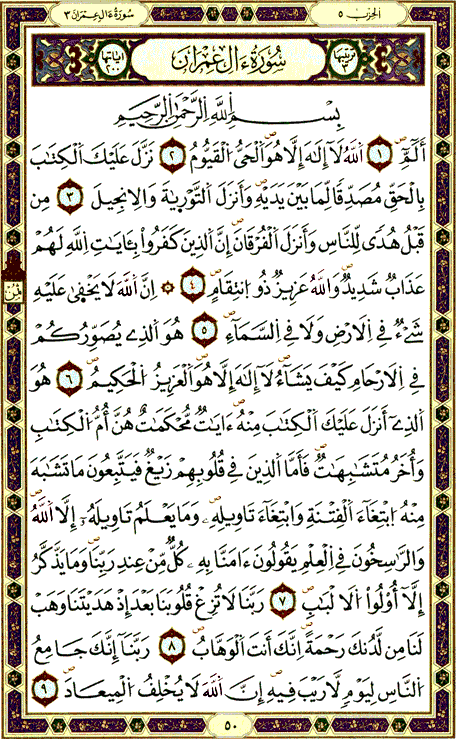 الحزب ٥
سُورَةُ ءَالِ عِمْرَانَ ٣
ترتيبها ٣ سُورَةُ ءَالِ عِمْرَانَ ءاياتها ٢٠٠
بِسْمِ اللَّهِ الرَّحْمَٰنِ الرَّحِيمِ
أَلَٓمِّٓ ١ اَ۬للَّهُ لَآ إِلَٰهَ إِلَّا هُوَ اَ۬لْحَيُّ اُ۬لْقَيُّومُ ٢ نَزَّلَ عَلَيْكَ اَ۬لْكِتَٰبَ
بِالْحَقِّ مُصَدِّقاٗ لِّمَا بَيْنَ يَدَيْهِ وَأَنزَلَ اَ۬لتَّوْرَيٰةَ وَالِانجِيلَ ٣ مِن
قَبْلُ هُدٗى لِّلنَّاسِ وَأَنزَلَ اَ۬لْفُرْقَانَ إِنَّ اَ۬لذِينَ كَفَرُواْ بِـَٔايَٰتِ اِ۬للَّهِ لَهُمْ
عَذَابٞ شَدِيدٞ وَاللَّهُ عَزِيزٞ ذُو اُ۪نتِقَامٍ ٤ ۞ اِنَّ اَ۬للَّهَ لَا يَخْف۪يٰ عَلَيْهِ
شَےْءٞ فِے اِ۬لَارْضِ وَلَا فِے اِ۬لسَّمَآءِ ٥ هُوَ اَ۬لذِے يُصَوِّرُكُمْ
فِے اِ۬لَارْحَامِ كَيْفَ يَشَآءُ لَآ إِلَٰهَ إِلَّا هُوَ اَ۬لْعَزِيزُ اُ۬لْحَكِيمُ ٦ هُوَ
اَ۬لذِےٓ أَنزَلَ عَلَيْكَ اَ۬لْكِتَٰبَ مِنْهُ ءَايَٰتٞ مُّحْكَمَٰتٌ هُنَّ أُمُّ اُ۬لْكِتَٰبِ
وَأُخَرُ مُتَشَٰبِهَٰتٞ فَأَمَّا اَ۬لذِينَ فِے قُلُوبِهِمْ زَيْغٞ فَيَتَّبِعُونَ مَا تَشَٰبَهَ
مِنْهُ اُ۪بْتِغَآءَ اَ۬لْفِتْنَةِ وَابْتِغَآءَ تَاوِيلِهِۦ وَمَا يَعْلَمُ تَاوِيلَهُۥٓ إِلَّا اَ۬للَّهُ
وَالرَّٰسِخُونَ فِے اِ۬لْعِلْمِ يَقُولُونَ ءَامَنَّا بِهِۦ كُلّٞ مِّنْ عِندِ رَبِّنَا وَمَا يَذَّكَّرُ
إِلَّآ أُوْلُواْ اُ۬لَالْبَٰبِ ٧ رَبَّنَا لَا تُزِغْ قُلُوبَنَا بَعْدَ إِذْ هَدَيْتَنَا وَهَبْ
لَنَا مِن لَّدُنكَ رَحْمَةً اِنَّكَ أَنتَ اَ۬لْوَهَّابُ ٨ رَبَّنَآ إِنَّكَ جَامِعُ
اُ۬لنَّاسِ لِيَوْمٖ لَّا رَيْبَ فِيهِ إِنَّ اَ۬للَّهَ لَا يُخْلِفُ اُ۬لْمِيعَادَ ٩
ثمن
٥٠